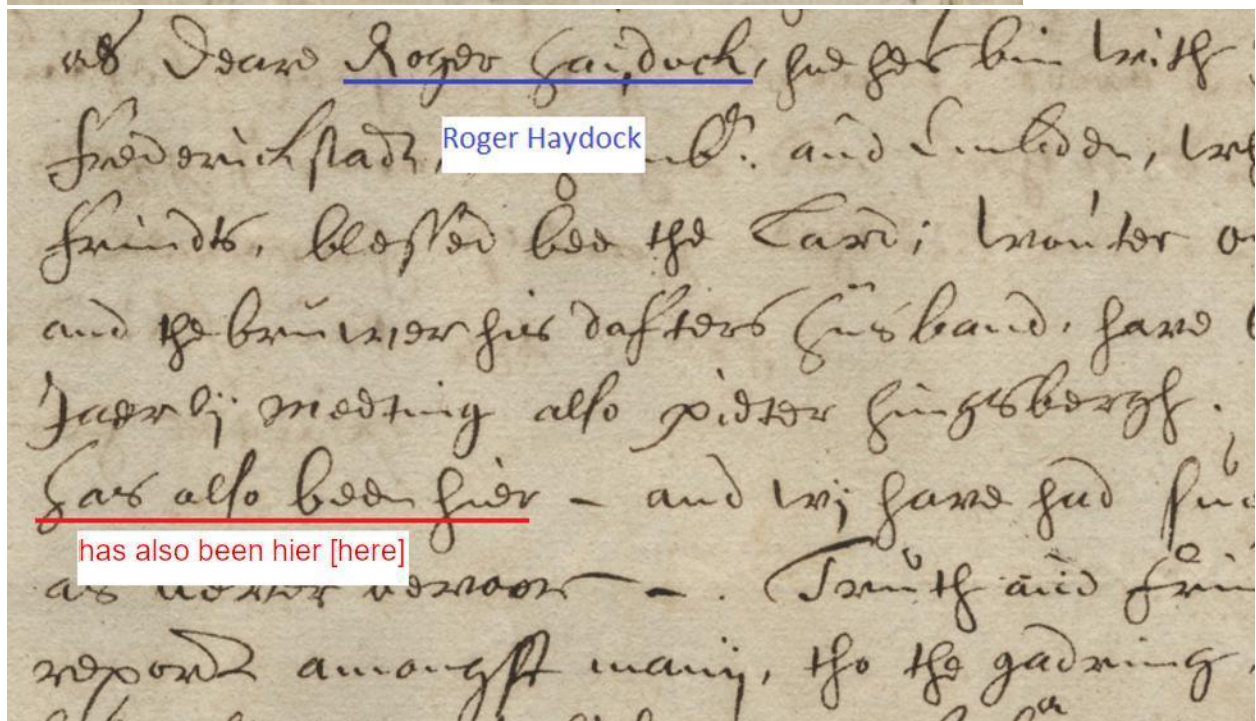 as Deare Roger Haijdock, hee hes bin with
Frederickstadt,
Roger Haydock
and Embden,
frindts, blessed bee the Lard; wouter
and the bruwer his dafters husband. have
Jaerlij meeting also pieter hingsbergh.
has also been hier – and wij have had
has also been hier [here]
as never – . Truth and
report amongst manij, tho the gadring